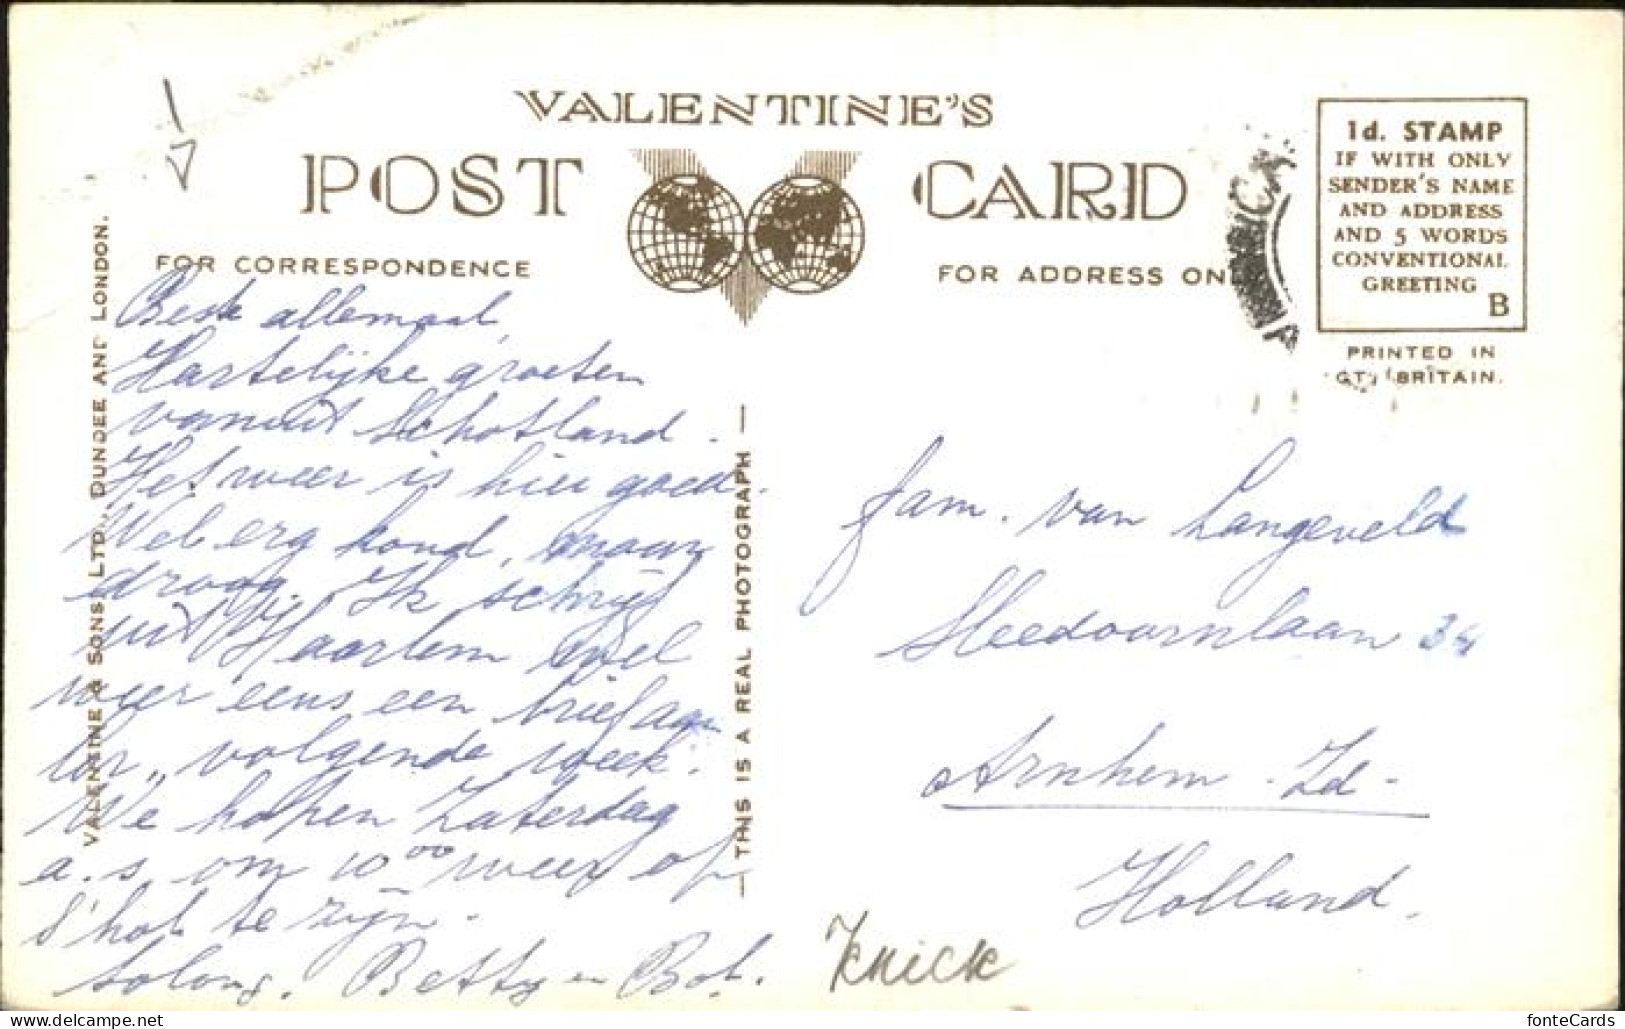 VALENTINE'S
POST CARD
FOR CORRESPONDENCE
FOR ADDRESS ONL
1d. STAMP
IF WITH ONLY
SENDER'S NAME
AND ADDRESS
AND 5 WORDS
CONVENTIONAL
GREETING
B
PRINTED IN
GT. BRITAIN.
VALENTINE & SONS, LTD., DUNDEE AND LONDON.
Beste allemaal,
Hartelijke groeten
vanuit Schotland.
Het weer is hier goed.
Wel erg koud, maar
droog. Ik schrijf
uit Haarlem wel
weer eens een brief aan
volgende week.
We hopen Zaterdag
a.s om 10 00 weer op
S'hol te zijn.
solong. Betty en Bob.
THIS IS A REAL PHOTOGRAPH
fam. van Langeveld
Sleedoornlaan 34
Arnhem - Zd -
Holland.
Knick
fonteCards